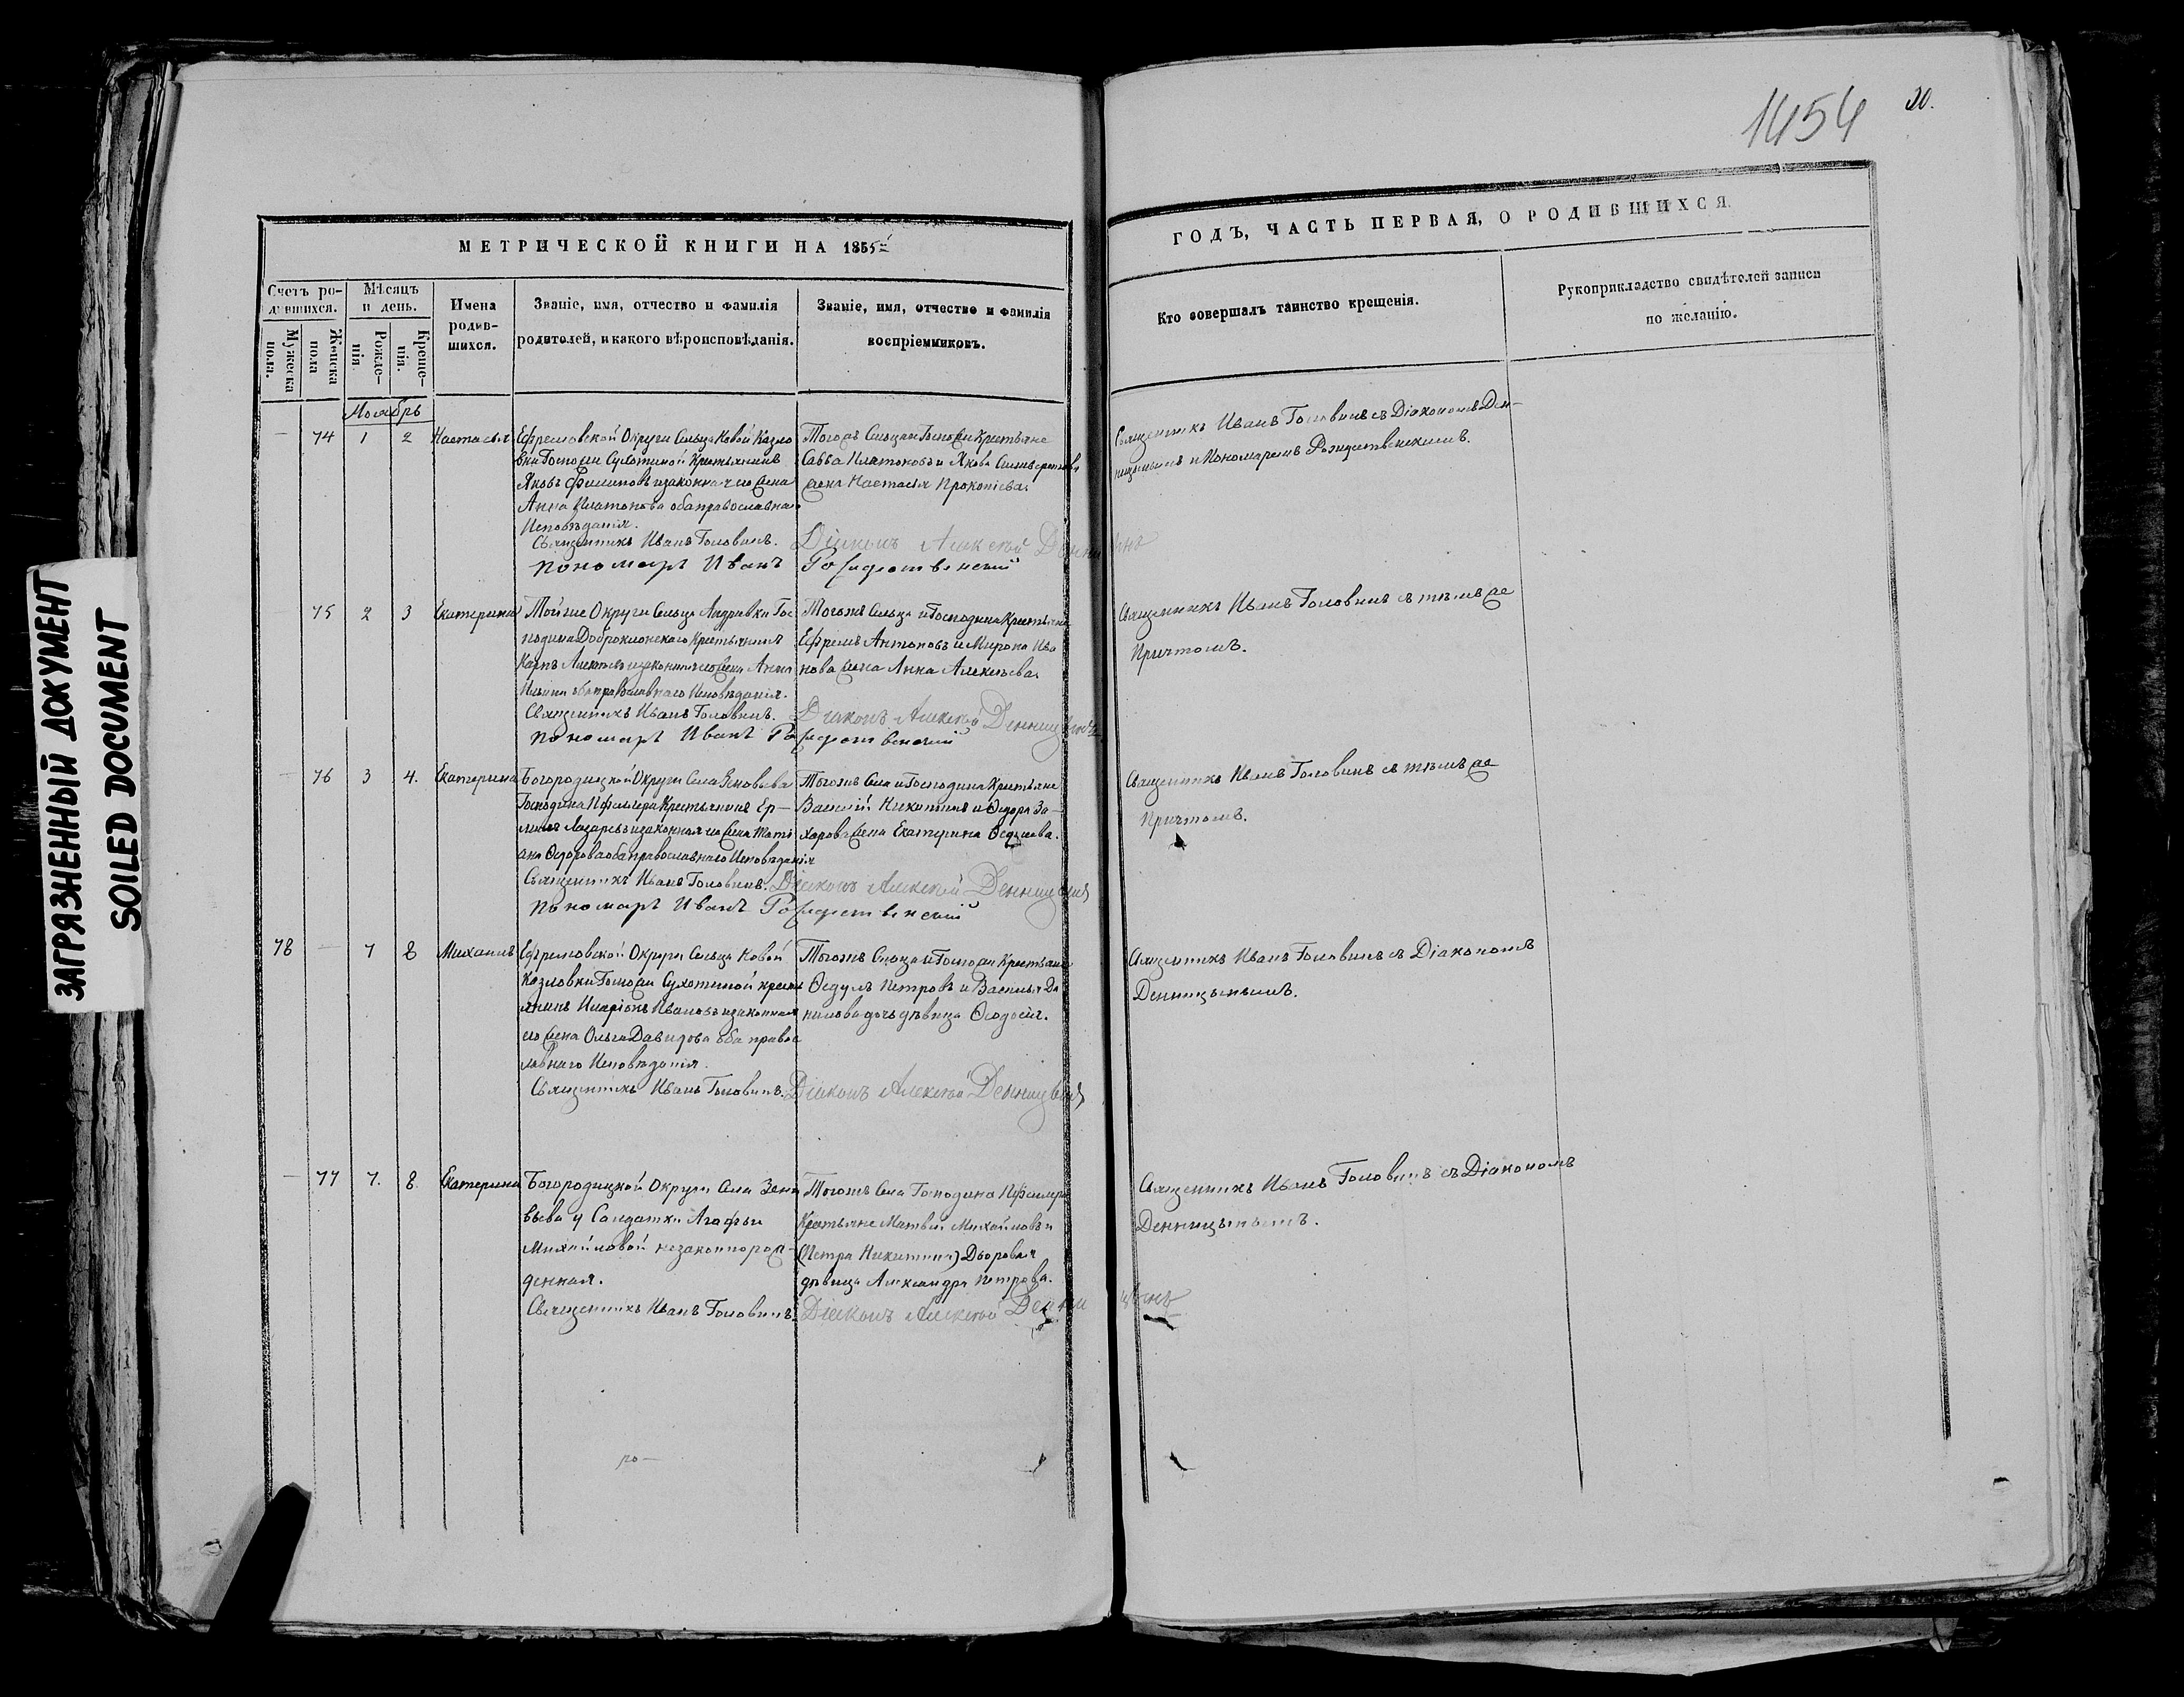 ЗАГРЯЗНЕННЫЙ ДОКУМЕНТ
SOILED DOCUMENT
1454
20.
МЕТРИЧЕСКОЙ КНИГИ НА 1855й
Счетъ ро-
дившихся.
Мужеска пола.
Женска пола
Мѣсяцъ
и день.
Рожде-
нія
Креще-
нія.
Имена
родив-
шихся.
Званіе, имя, отчество и фамилія
родителей, и какого вѣроисповѣданія.
Званіе, имя, отчество и фамилія
воспріемниковъ.
ГОДЪ, ЧАСТЬ ПЕРВАЯ, О РОДИВШИХСЯ.
Кто совершалъ таинство крещенія.
Рукоприкладство свидѣтелей записи
по желанію.
Ноябрь
— 74 1 2 Настасья
Ефремовской Округи Сельца Новой Казло
вки Госпожи Сухотиной Крестьянинъ
Яковъ Филиповъ изаконная его жена
Анна Платонова оба православнаго
Исповѣданія.
Священникъ Иванъ Головинъ.
Пономарь Иванъ Рождественскій
Тогожъ Сельца и Госпожи Крестьяне
Савва Платоновъ и Якова
жена Настасья Прокопіева.
Діаконъ Алексѣй Денницынъ
Священникъ Иванъ Головинъ съ Діакономъ Ден-
ницынымъ и Пономаремъ Рождественскимъ.
75 2 3 Екатерина
Тойже Округи Сельца Андреевки Гос
подина Доброклонскаго Крестьянинъ
Карпъ Алексѣевъ изаконная его жена Анна
Ильина оба православнаго Исповѣданія.
Священникъ Иванъ Головинъ.
Пономарь Иванъ Рождественскій
Тогожъ Сельца и Господина Крестьяне
Ефремъ Антоновъ и Мирона Ива
нова жена Анна Алексѣева.
Діаконъ Алексѣй Денницынъ
Священникъ Иванъ Головинъ съ тѣмъ же
Причтомъ.
— 76 3 4. Екатерина
Богородицкой Округи Села
Господина Пфеллера Крестьянинъ Ер-
милъ Лазаревъ изаконная его жена Тать
яна Ѳедорова оба православнаго Исповѣданія
Священникъ Иванъ Головинъ.
Пономарь Иванъ Рождественскій
Тогожъ Села и Господина Крестьяне
Василій Никитинъ и Ѳедора За-
харова жена Екатерина
Діаконъ Алексѣй Денницынъ
Священникъ Иванъ Головинъ съ тѣмъ же
Причтомъ.
78 — 7 8 Михаилъ
Ефремовской Округи Сельца Новой
Казловки Госпожи Сухотиной кресть
янинъ Иларіонъ Ивановъ изаконная
его жена Ольга Давидова оба правос
лавнаго Исповѣданія.
Священникъ Иванъ Головинъ.
Тогожъ Сельца и Госпожи Крестьяне
Ѳедулъ Петровъ и Василья Да
нилова дочь дѣвица Ѳеодосія.
Діаконъ Алексѣй Денницынъ
Священникъ Иванъ Головинъ съ Діакономъ
Денницынымъ.
— 77 7. 8. Екатерина
Богородицкой Округи Села Зено
вьева у Солдатки Агафьи
Михайловой незаконнорож-
денная.
Священникъ Иванъ Головинъ.
Тогожъ Села Господина Пфеллера
Крестьяне Матвей Михайловъ и
(Петра Никитина) Дворовая
дѣвица Александра Петрова.
Діаконъ Алексѣй Денницынъ
Священникъ Иванъ Головинъ съ Діакономъ
Денницынымъ.